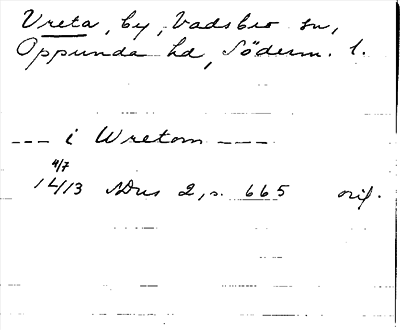 Vreta, by, Vadsbro sn,
Oppunda hd, Söderm. l.
--- i Wretom ---
4/7
1413 SDns 2, s. 665 orig.